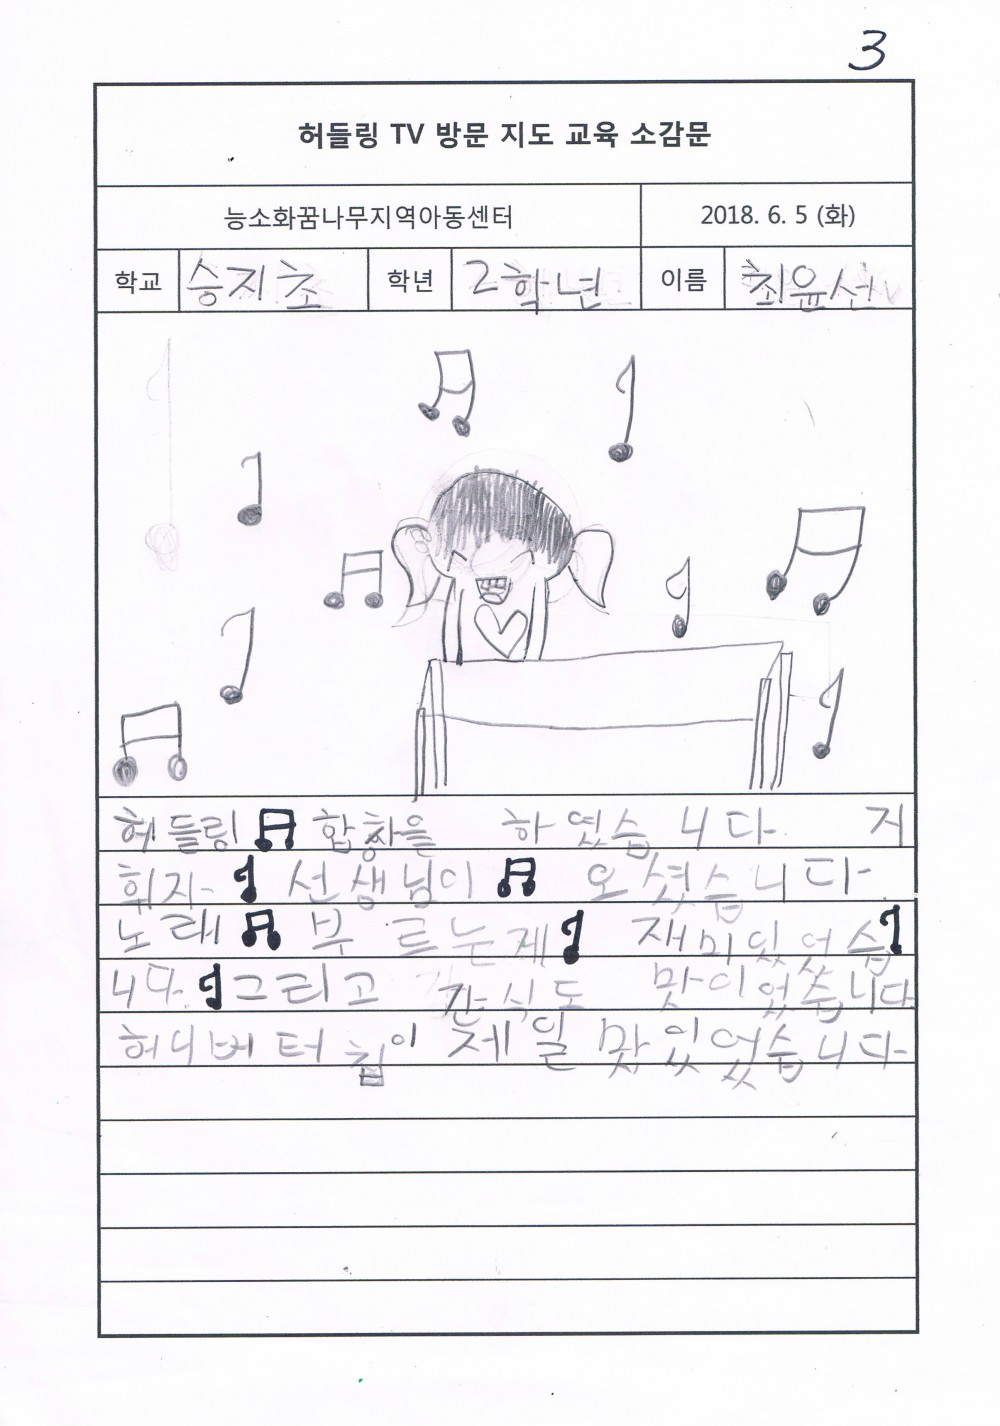 3
허들링 TV 방문 지도 교육 소감문
능소화꿈나무지역아동센터 2018. 6. 5 (화)
학교 승지초 학년 2학년 이름 최윤선
허들링 합창을 하였습니다. 지
휘자 선생님이 오셨습니다.
노래 부르는게 재미있었습
니다. 그리고 간식도 맛이었습니다
허니버터칩이 제일 맛있었습니다